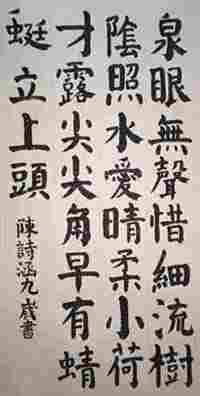 泉眼無聲惜細流樹
陰照水愛晴柔小荷
才露尖尖角早有蜻
蜓立上頭
陳詩涵九歲書